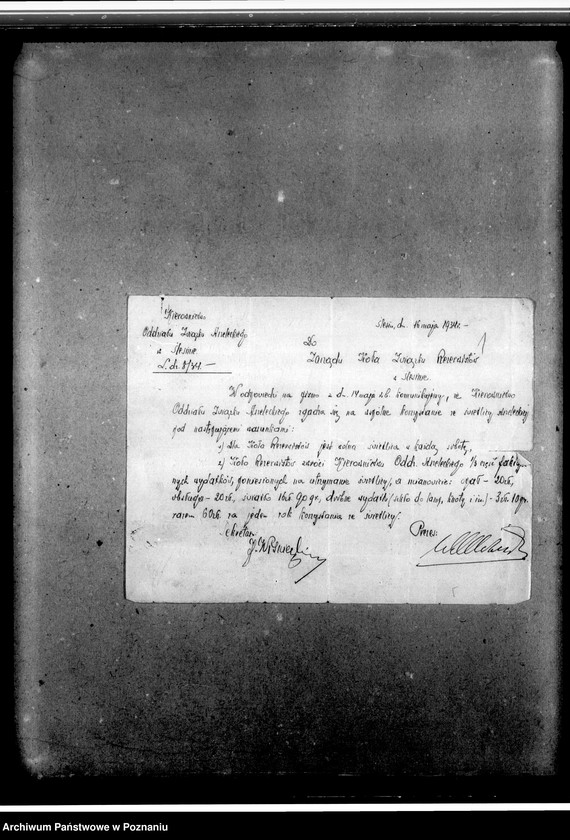 Kierownictwo
Oddziału Związku Strzeleckiego
w Ślesinie
L. dz. 8/34. —
Ślesin, dn. 16 maja 1934r. —
Do
Zarządu Koła Związku Rezerwistów
w Ślesinie
W odpowiedzi na pismo z dn. 14 maja r.b. komunikujemy, że Kierownictwo
Oddziału Związku Strzeleckiego zgadza się na wspólne korzystanie ze świetlicy strzeleckiej
pod następującemi warunkami:
1) Dla Koła Rezerwistów jest wolna świetlica w każdą sobotę,
2) Koło Rezerwistów zwróci Kierownictwu Oddz. Strzeleckiego 1/3 część faktycz-
nych wydatków, poniesionych na utrzymanie świetlicy, a mianowicie: opał - 20zł,
obsługa - 20zł, światło 16zł 90gr, drobne wydatki (szkło do lamp, knoty i in.) - 3zł 10gr.
razem 60zł za jeden rok korzystania ze świetlicy.
Sekretarz
Prezes:
Archiwum Państwowe w Poznaniu